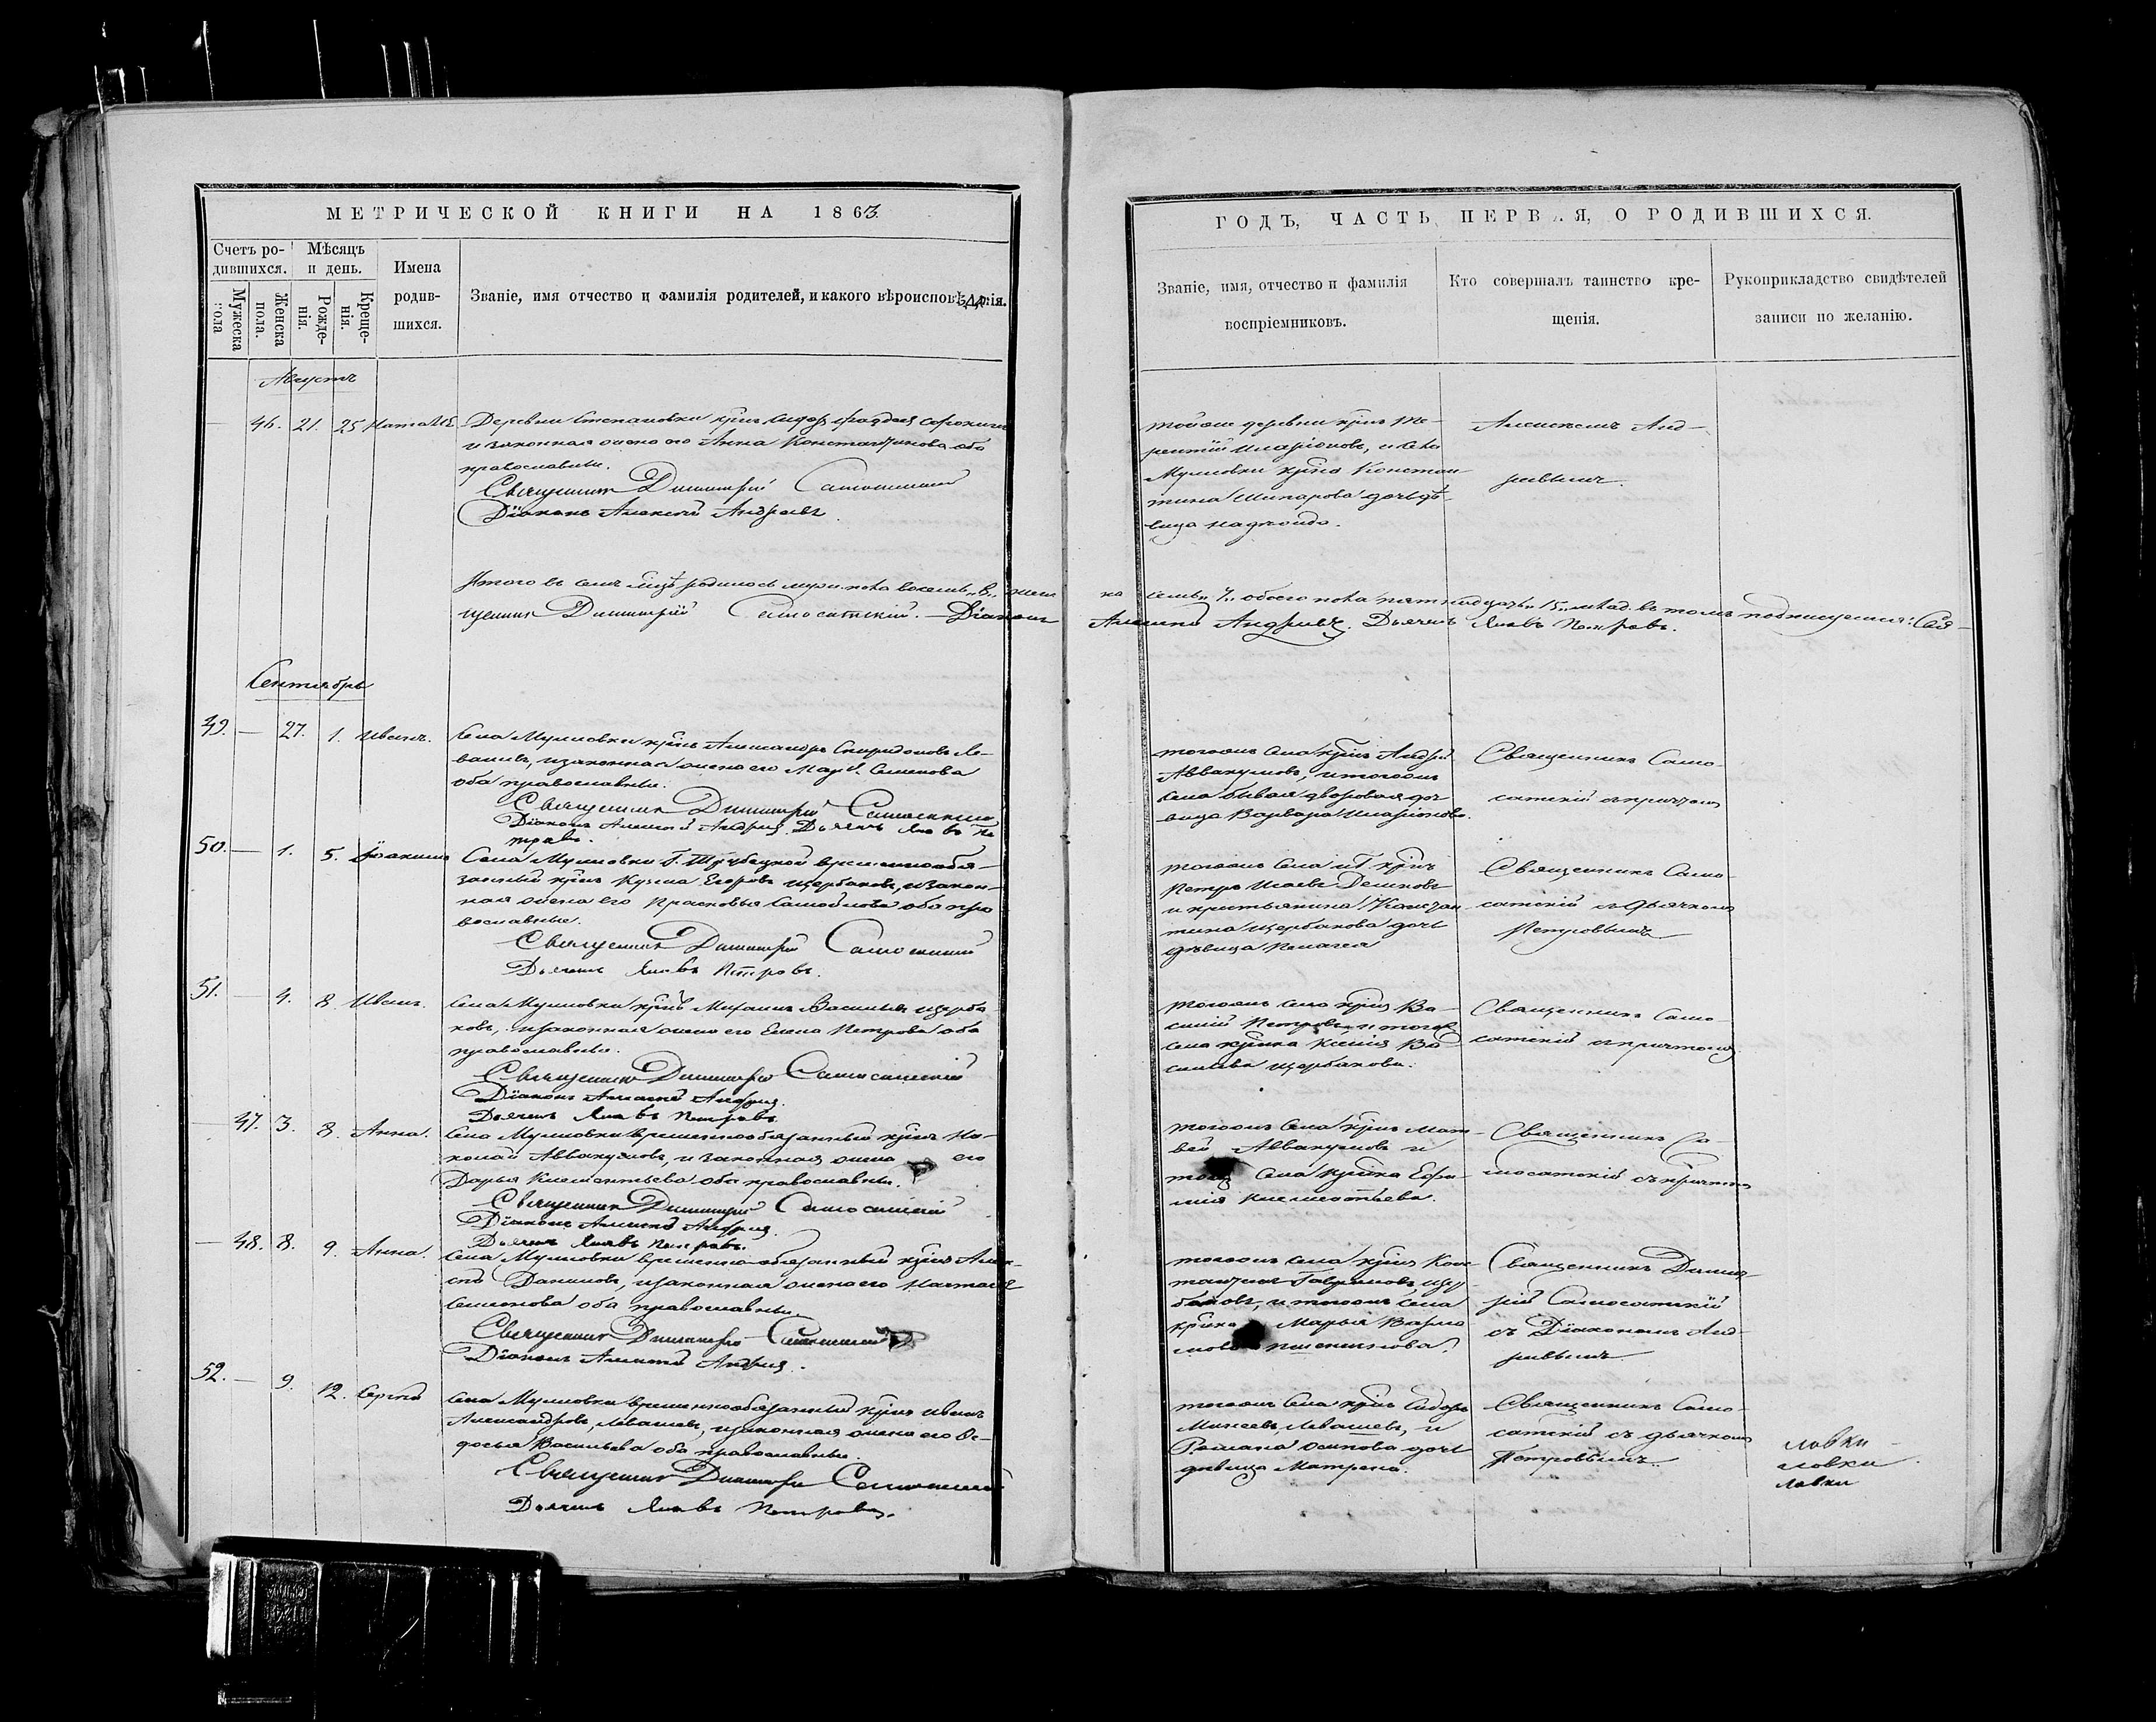 МЕТРИЧЕСКОЙ КНИГИ НА 1863
Счетъ ро-
дившихся.
Мужеска
пола
Женска
пола.
Мѣсяцъ
и день.
Рожде-
нія.
Креще-
нія.
Имена
родив-
шихся.
Званіе, имя отчество и фамилія родителей, и какого вѣроисповѣданія.
Августъ
46. 21. 25.
Деревни Степановки крес.
и законная жена его Анна Константинова оба
православные.
Священникъ Димитрій Самосатскій
Діаконъ Алексѣй Андреевъ
Итого въ семъ родилось муж. пола восемь 8 жен
щенникъ Димитрій Самосатскій. Діаконъ
Сентябрь
49. — 27. 1. Иванъ.
Села Мулловки крес. Александръ Спиридоновъ Ле-
вашевъ, и законная жена его Семенова
оба православные.
Священникъ Димитрій Самосатскій
Діаконъ Алексѣй Дьячекъ Яковъ Пе
тровъ.
50. — 1. 5.
Села Мулловки Г. Трубецкой временнообя-
занный крес. Кузма Егоровъ Щербаковъ, и закон-
ная жена его Прасковья Самойлова оба пра
вославные.
Священникъ Димитрій Самосатскій
Дьячекъ Яковъ Петровъ.
51. — 4. 8. Иванъ.
Села Мулловки крес. Михаилъ Васильевъ Щерба
ковъ, и законная жена его Елена Петрова оба
православные.
Священникъ Димитрій Самосатскій
Діаконъ Алексѣй
Дьячекъ Яковъ Петровъ
— 47. 3. 8. Анна.
Села Мулловки временнообязанный крес. Ни-
колай Аввакумовъ, и законная жена его
Дарья Клементьева оба православные.
Священникъ Димитрій Самосатскій
Діаконъ Алексѣй
Дьячекъ Яковъ Петровъ.
— 48. 8. 9. Анна.
Села Мулловки временно-обязанный крес. Алек-
сѣй Даниловъ, и законная жена его Наталья
Семенова оба православные.
Священникъ Димитрій Самосатскій
Діаконъ Алексѣй
52. — 9. 12. Сергѣй
Села Мулловки временнообязанный крес. Иванъ
Александровъ Левашевъ, и законная жена его Ѳе-
досья Васильева оба православные.
Священникъ Димитрій Самосатскій
Дьячекъ Яковъ Петровъ.
ГОДЪ, ЧАСТЬ ПЕРВАЯ, О РОДИВШИХСЯ.
Званіе, имя, отчество и фамилія
воспріемниковъ.
Кто совершалъ таинство кре-
щенія.
Рукоприкладство свидѣтелей
записи по желанію.
тойже деревни крес. Те-
рентій Иларіоновъ, и села
Мулловки крес. Констан
тина дочь дѣ-
вица Надежда.
Алексѣемъ Анд-
реевымъ.
семь 7 обоего пола пятнадцать 15 въ томъ подписуемся: Свя-
Алексѣй Андреевъ. Дьячекъ Яковъ Петровъ.
тогожъ села крес. Андрей
Аввакумовъ, и тогожъ
села бывая дворовая дѣ
вица Варвара Иларіонова.
Священникъ Само-
сатскій съ причтомъ
тогожъ села и Г. крес.
Петръ Исаевъ
и крестьянина Констан
тина Щербакова дочь
дѣвица Пелагея
Священникъ Само-
сатскій съ дьячкомъ
Петровымъ
тогожъ села крес. Ва-
силій Петровъ, и тогожъ
села Ксенія Ва
сильева Щербакова.
Священникъ Само-
сатскій съ причтомъ
тогожъ села крес. Мат-
вей Аввакумовъ и
села Ефи-
мія Клементьева.
Священникъ Са-
мосатскій съ причтомъ
тогожъ села крес. Конс
тантинъ Гавриловъ Щер
баковъ, и тогожъ села
Марья
Священникъ Димит-
рій Самосатскій
съ Діакономъ Анд-
реевымъ
тогожъ села крес. Сидоръ
Минеевъ Левашевъ, и
Романа Осипова дочь
дѣвица Матрена.
Священникъ Само-
сатскій съ дьячкомъ
Петровымъ.
ловки
ловки
ловки